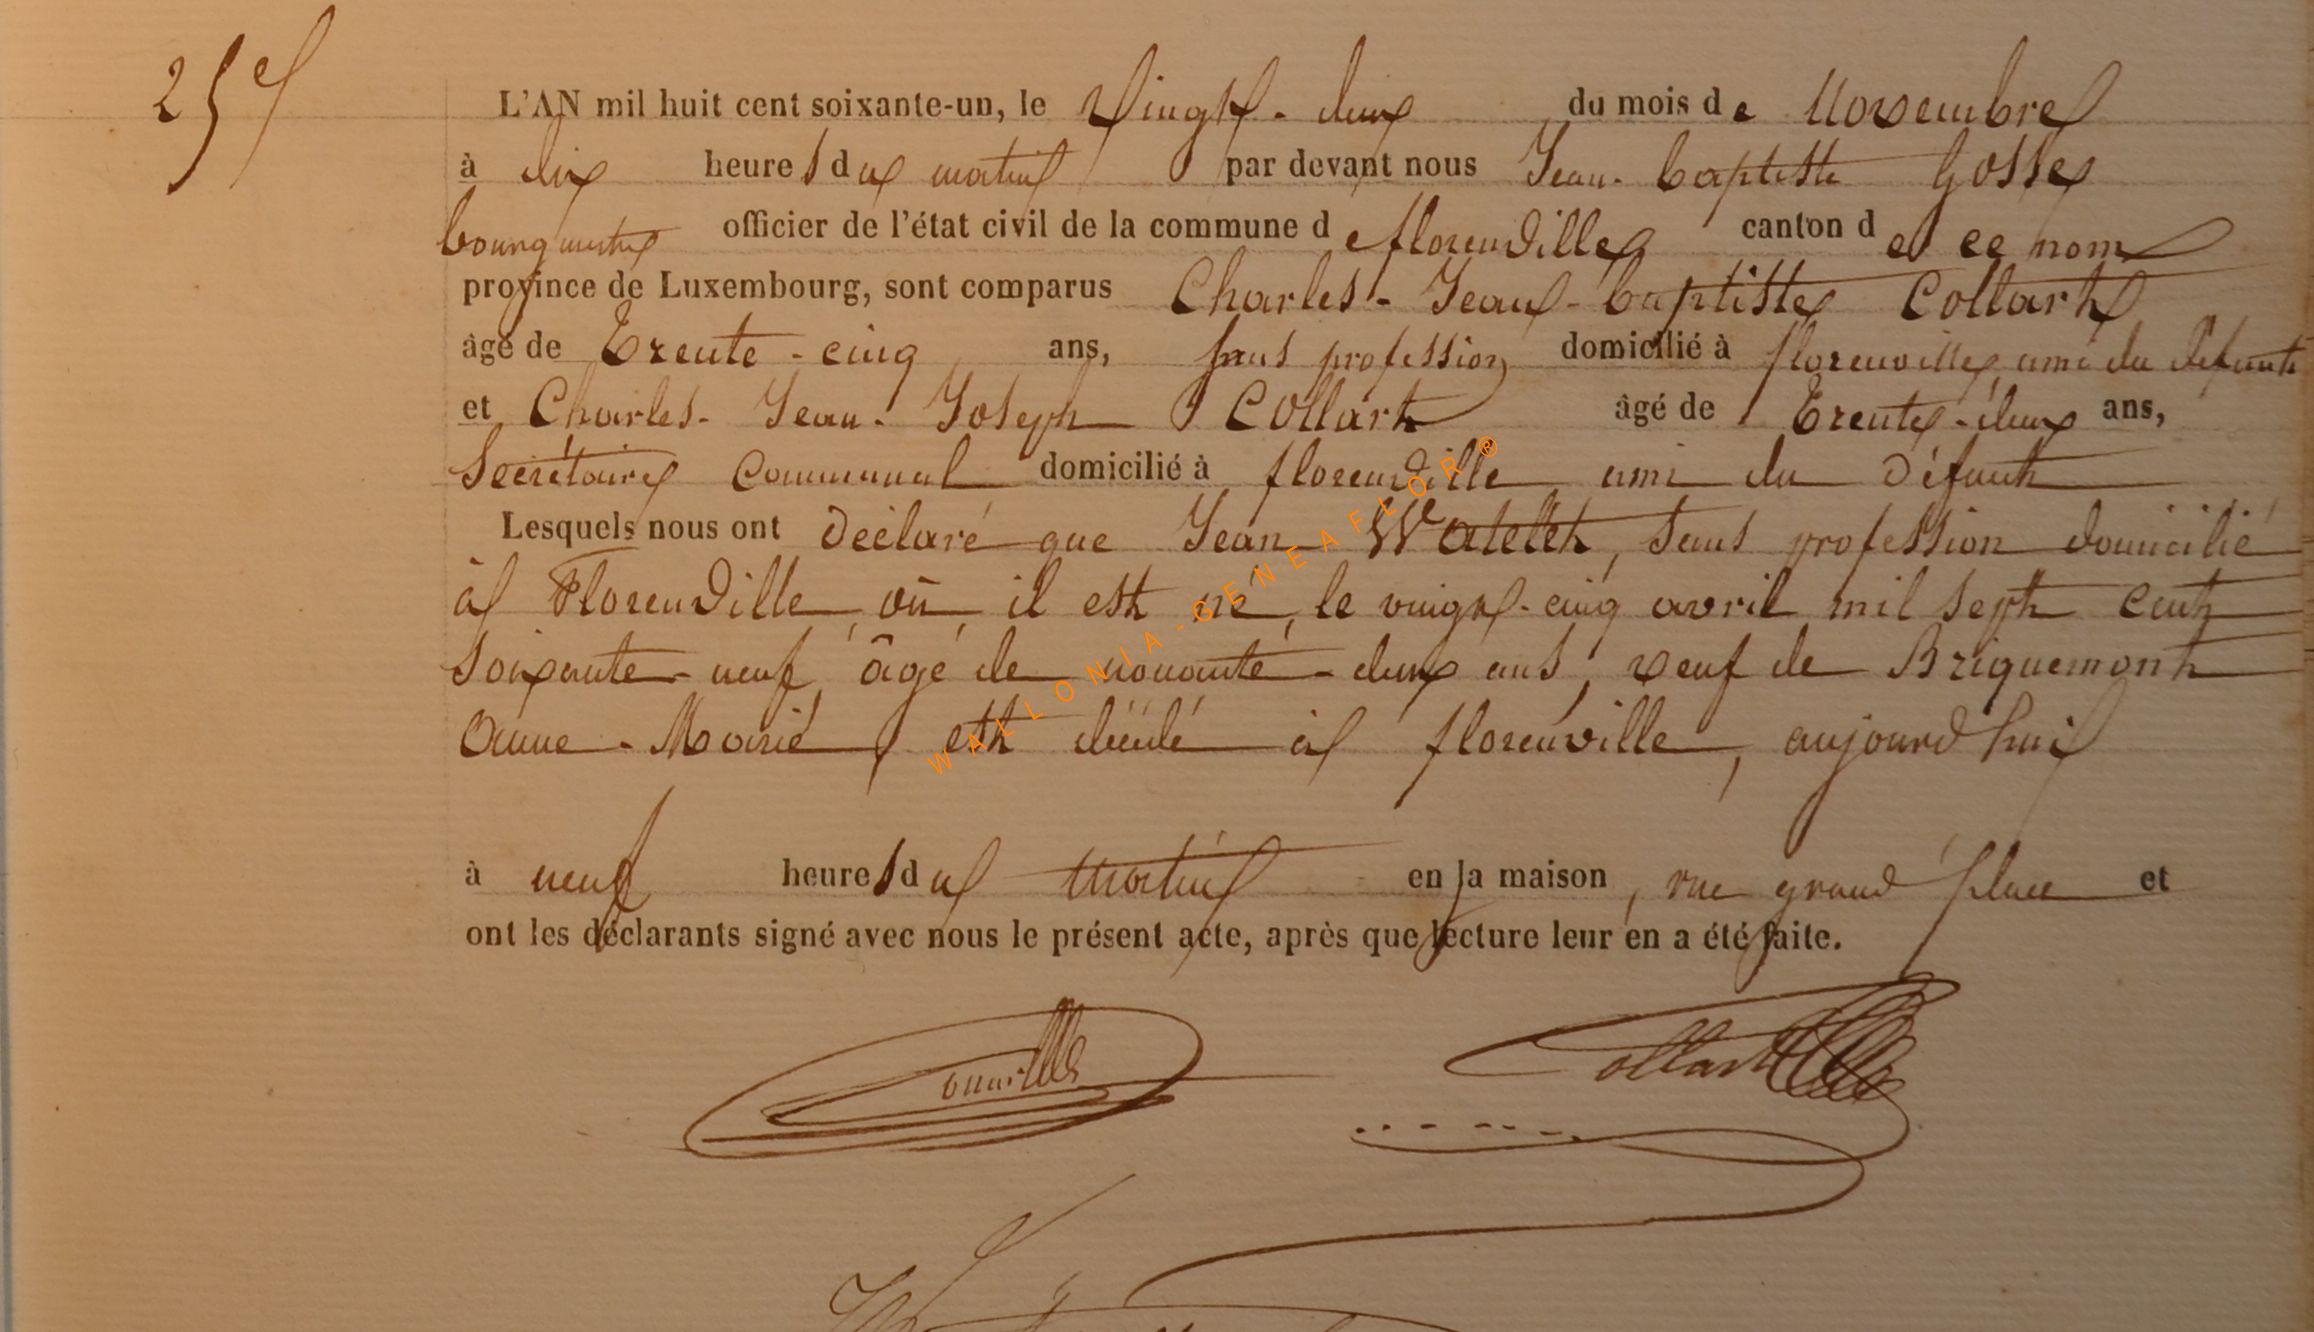 25e
L'AN mil huit cent soixante-un, le Vingt-deux du mois de Novembre
à dix heures du matin par devant nous Jean-baptiste Gosse
bourgmestre officier de l'état civil de la commune de florenville canton de ce nom
province de Luxembourg, sont comparus Charles-Jean-baptiste Collart
âgé de Trente-cinq ans, sans profession domicilié à florenville, ami du défunt
et Charles-Jean-Joseph Collart âgé de Trente-deux ans,
Secrétaire Communal domicilié à florenville ami du Défunt
Lesquels nous ont Déclaré que Jean Watelet, sans profession domicilié
à Florenville, où il est né, le vingt-cinq avril mil sept cent
soixante-neuf, âgé de nonante-deux ans, veuf de Briquemont
Anne-Marie, est décédé à florenville, aujourd'hui
à neuf heures du matin en sa maison, rue grand place et
ont les déclarants signé avec nous le présent acte, après que lecture leur en a été faite.
Collart
WALLONIA-GENEAFLOR®